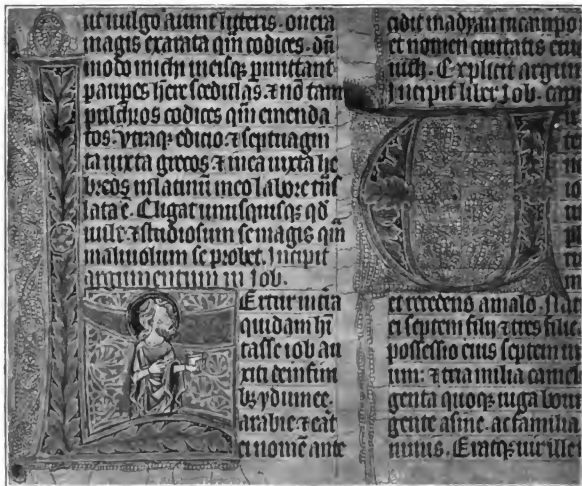 ut uulgo aiunt litteris. onera
magis exarata qm̄ codices. dū
modo michi meisq; ꝑmittant
pauꝑes h̄ere scedulas ⁊ nō tam
pulchros codices qm̄ emenda
tos. ytraq; edicio ⁊ septuagin
ta iuxta grecos ⁊ mea iuxta he
breos in latinū meo labore trās
lata ē. Eligat unusquisq; qd̄
uult. ⁊ studiosum se magis qm̄
maliuolum se probet. Incipit
argumentum in Iob.
quidam hi
tasse iob au
arabie. ⁊ eāt
ei nomē ante
cidit madyan in campo
et nomen ciuitatis eiu
Explicit argum
Incipit liber Iob. cap
et recedens a malo. Nat
ei septem filij ⁊ tres filie
possessio eius septem m
um. ⁊ tria milia camel
genta quoq; iuga boum
gente asine. ac familia
nimis. Eratq; uir ille